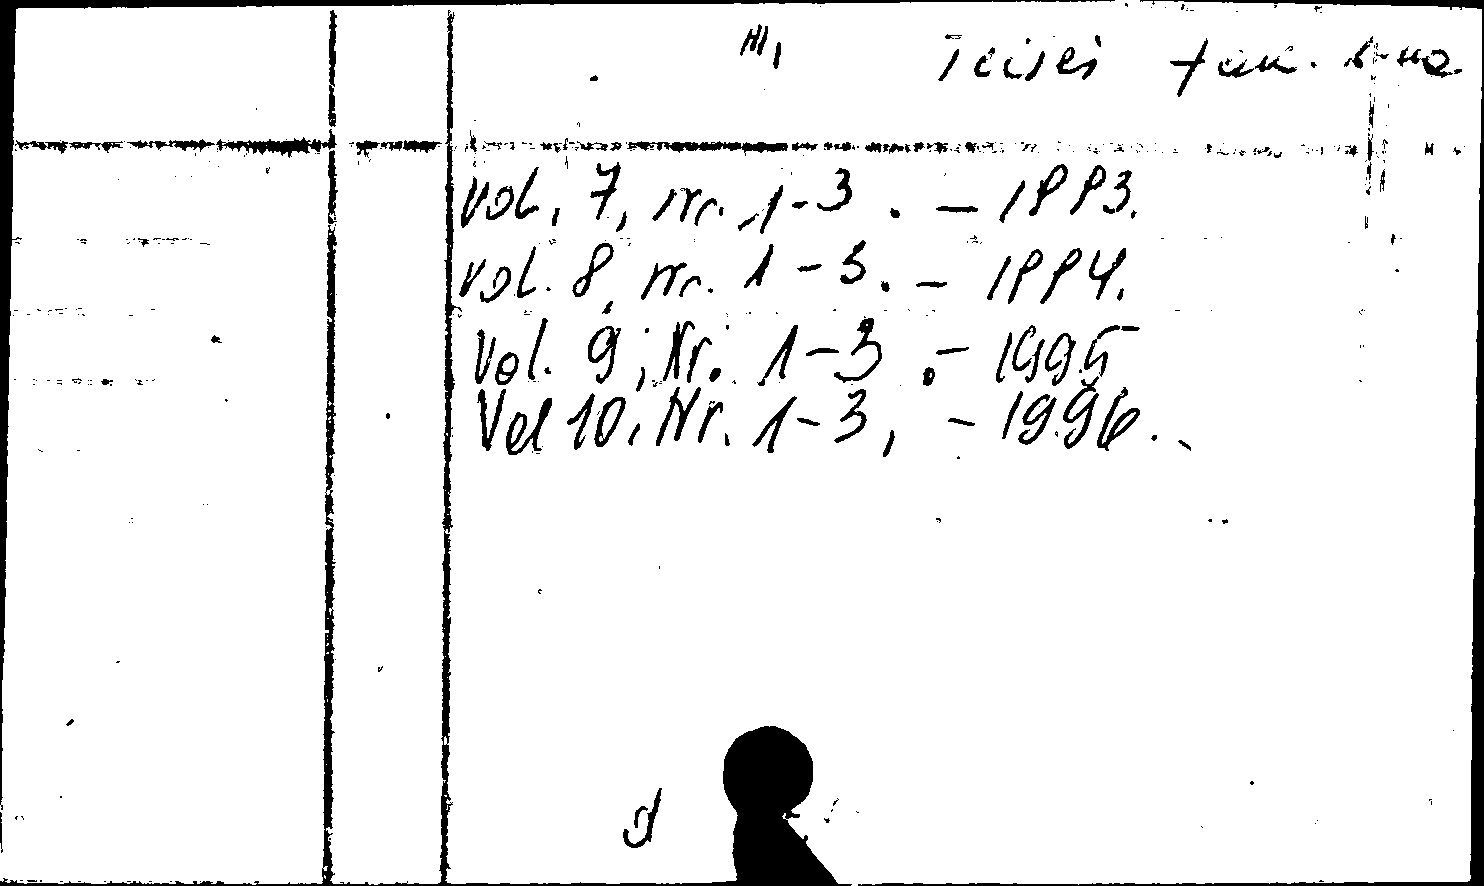 Teisės fak. b-ka
Vol. 7, Nr. 1-3. - 1993.
Vol. 8, Nr. 1-3. - 1994.
Vol. 9, Nr. 1-3. - 1995
Vol 10, Nr. 1-3, - 1996.